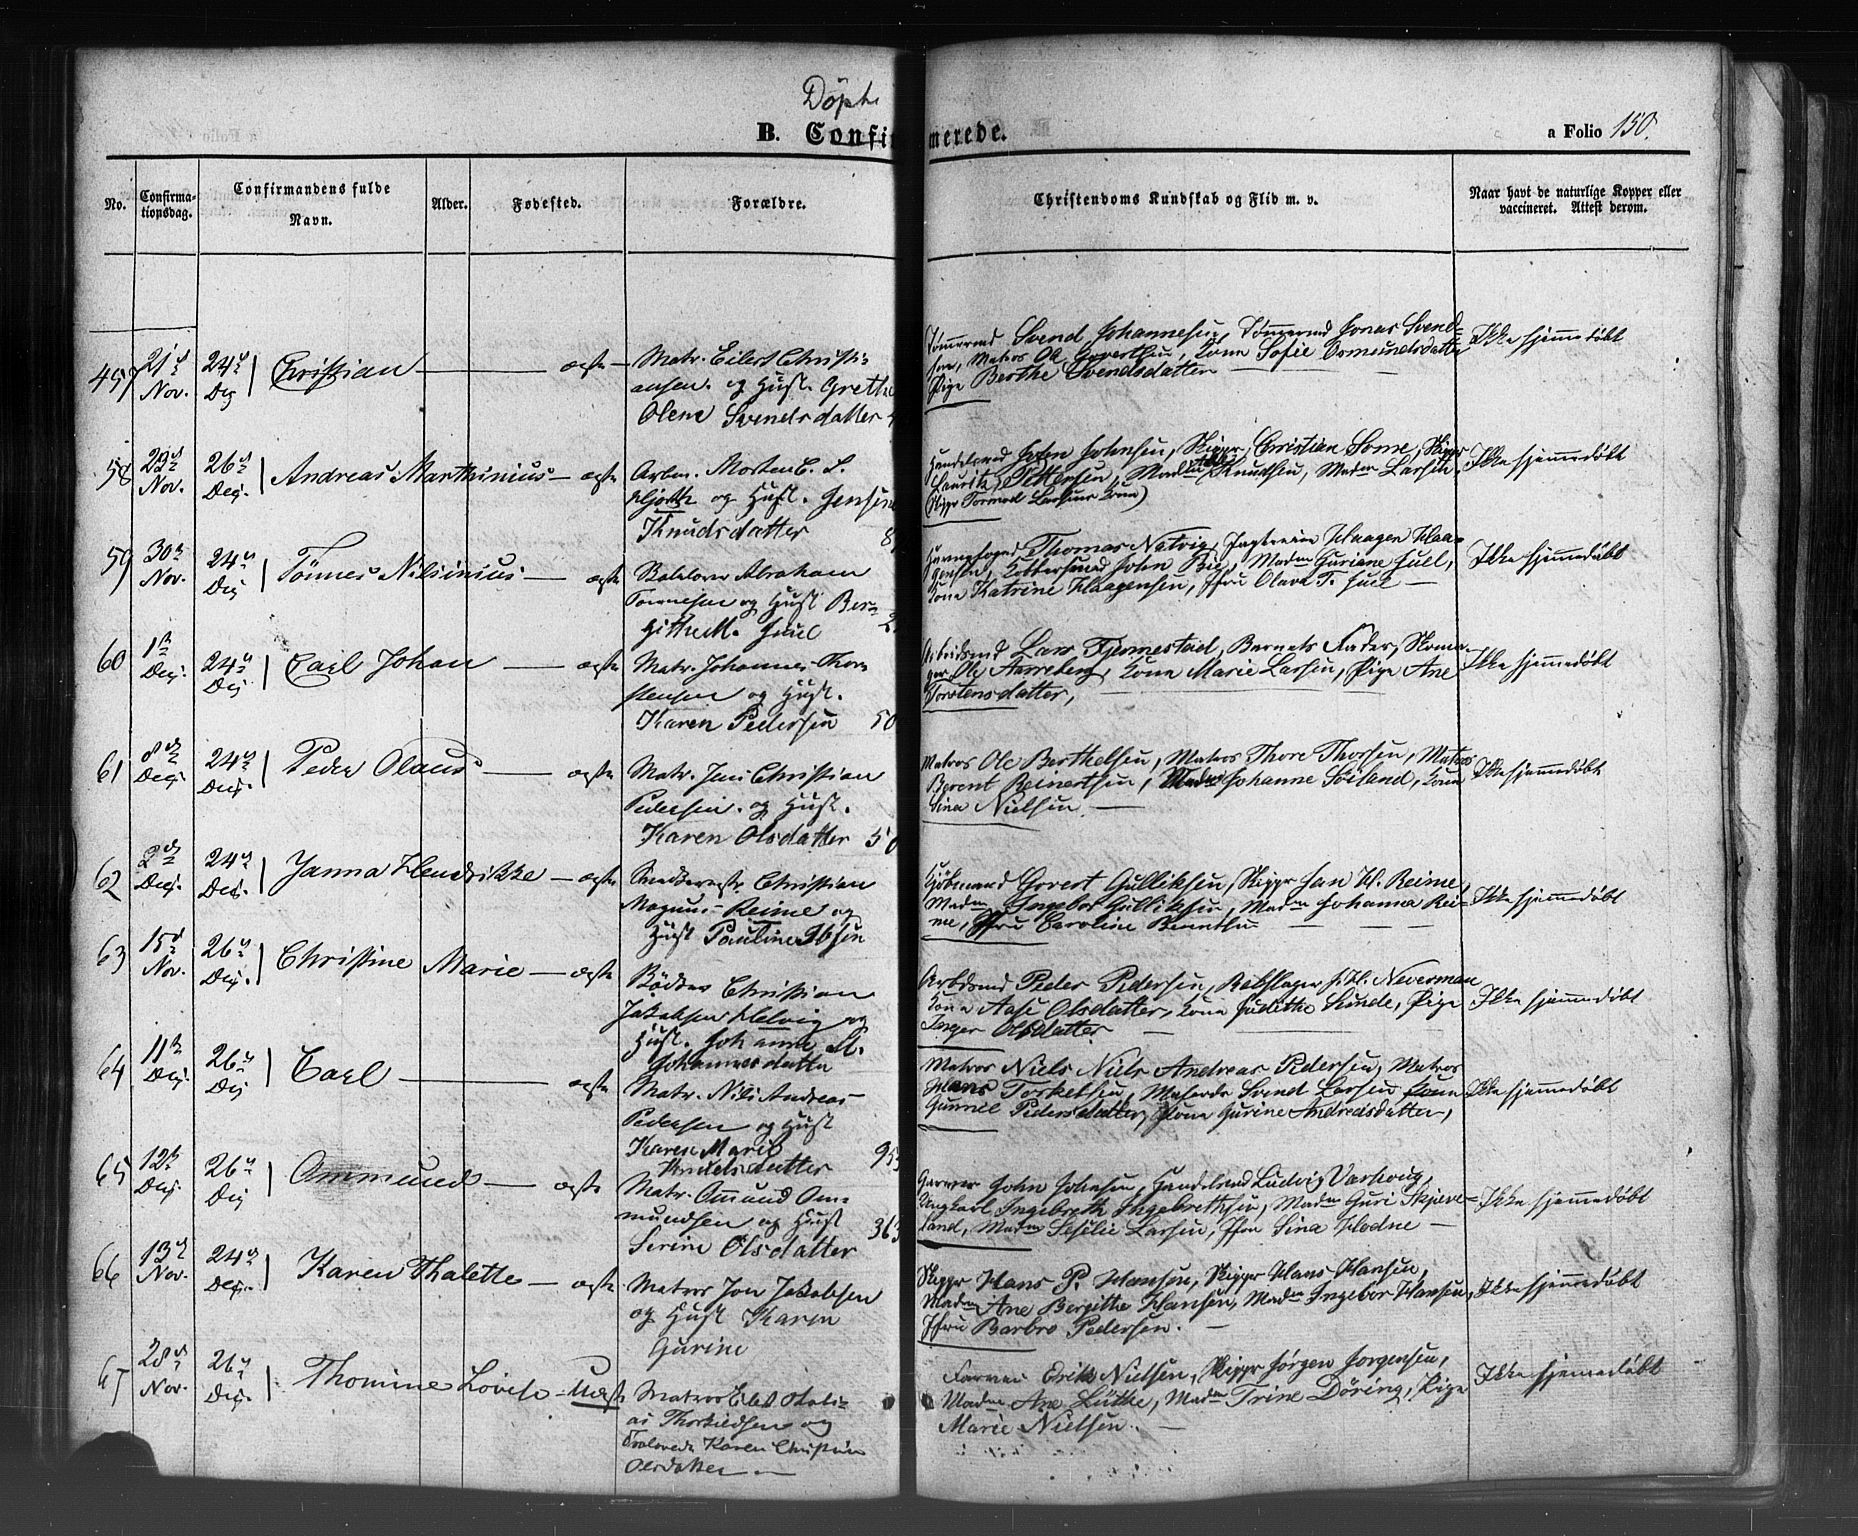 Döpte
B. Confirmerede.
a Folio 150.
No.
Confirma-
tionsdag.
Confirmandens fulde
Navn.
Alder.
Fødested.
Forældre.
Christendoms Kundskab og Flid m. v.
Naar havt de naturlige Kopper eller
vaccineret. Attest derom.
457 21 Nov. 24 Dec Christian — ægte — Matr. Eilert Christi-
ansen og Hust. Grethe
Olene Svendsdatter
Tømmermd Svend Johannesen, Tømmermd Jonas Svend-
sen, Matros Ole Govertsen, Kona Sofie Osmundsdatter
Pige Berthe Svendsdatter —
Ikke hjemmedøbt
58 29 Nov. 26 Dec. Andreas Marthinius — ægte Arbm. Morten C. L.
Hjorth og Hust. Gensine
Knudsdatter
Handelsmd John Johnsen, Skippr Christian Some, Skippr
Lauritz Pettersen, Madm Knudsen, Madm Larsen,
(Skippr Tormod Larsens Kona)
Ikke hjemmedøbt
59 30 Nov. 24 Dec Tönnes Nilsinius — ægte Abraham
Tönnesen og Hust Ber-
githe M. Juel
Thomas Natvig, Haagen Haa-
gensen, John Bie, Madm Guriane Juel,
Kona Katrine Haagensen, Jfru Olava T. Juel —
Ikke hjemmedøbt
60 1 Dec. 24 Dec Carl Johan — ægte Matr. Johannes Thor-
stensen og Hust.
Karen Pedersen 50
Arbeidsmd Lars Tjennestad, Barnets Fader, Skoma-
ger Ole Aarreberg, Kona Marie Larsen, Pige Ane
Torstensdatter,
Ikke hjemmedøbt
61 8 Dec. 24 Dec. Peder Olaus — ægte Matr. Jens Christian
Pedersen og Hust.
Karen Olsdatter 50
Matros Ole Berthelsen, Matros Thore Thorsen, Matros
Berent Reinertsen, Madm Johanne Soiland, Kona
Sina Nielsen —
Ikke hjemmedøbt
62 2 Dec. 24 Dec. Janna Hendrikke — ægte Snedkermstr Christian
Magnus Reime og
Hust Pauline Ibsen
Kjøbmand Govert Gulliksen, Skippr Jan H. Reime,
Madm Ingebor Gulliksen, Madm Johanna Rei-
me, Jfru Caroline Berntsen
Ikke hjemmedøbt
63 15 Nov. 26 Dec. Christine Marie — ægte Bödker Christian
Jakobsen Helvig og
Hust. Johanne M.
Johannesdatter
Arbdsmd Peder Pedersen, Rebslager J. H. Neverman
Kona Aase Olsdatter, Kona Judithe Lunde, Pige
Inger Olsdatter —
Ikke hjemmedøbt
64 11 Dec. 26 Dec Carl — ægte Matr. Nils Andreas
Pedersen og Hust
Karen Marie
Knudsdatter 953
Matros Niels Niels Andreas Pedersen, Matros
Hans Torkelsen, Svend Larsen Kona
Gunnil Pedersdatter, Kona Gurine Andreasdatter,
Ikke hjemmedøbt
65 12 Dec. 26 Dec Ommund — ægte Matr. Omund Om-
mundsen og Hust
Serine Olsdatter 363
Garver John Johnsen, Handelsmd Ludvig Varhoug,
Ungkarl Ingebreth Ingebrethsen, Madm Guri Skjæve-
land, Madm Sesilie Larsen, Jfru Sina Hodne —
Ikke hjemmedøbt
66 13 Nov. 24 Dec. Karen Thalette — ægte Matros Jon Jakobsen
og Hust Karen
Gurine
Skippr Hans P. Hansen, Skippr Hans Hansen,
Madm Ane Bergithe Hansen, Madm Ingebor Hansen,
Jfru Barbro Pedersen. —
Ikke hjemmedøbt
67 28 Nov. 26 Dec. Thomine Lovise — Uægte Matros
Thorkildsen og
Karen Christine
Olsdatter —
Farver Erik Nielsen, Skippr Jørgen Jorgensen,
Madm Ane Lütke, Madm Trine Döring, Pige
Marie Nielsen. —
Ikke hjemmedøbt